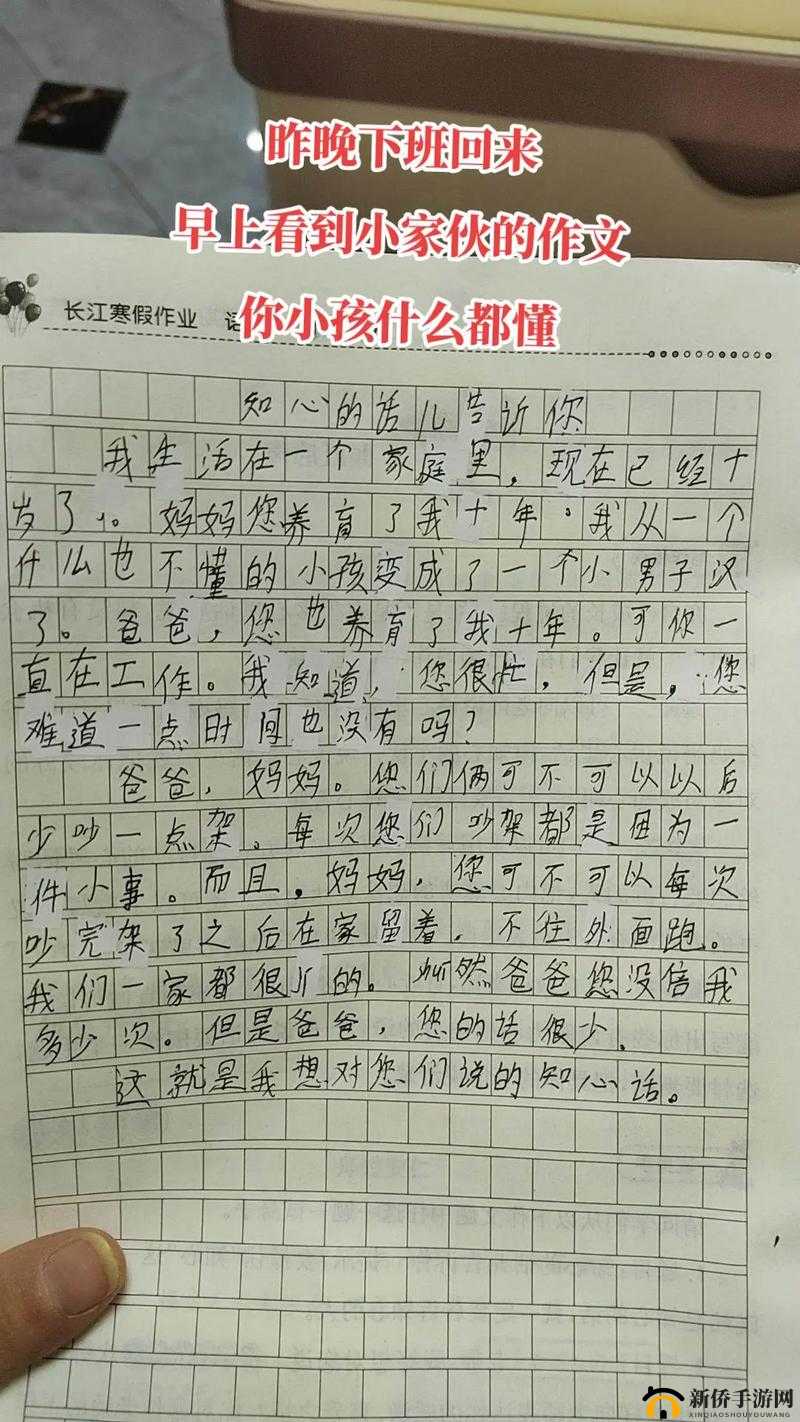 昨晚下班回来
早上看到小家伙的作文
你小孩什么都懂
长江寒假作业 语
知心的话儿告近你
我生活在一个家庭里，现在已经十
岁了。妈妈您养育了我十年。我从一个
什么也不懂的小孩变成了一个小男子汉
了。爸爸，您也养育了我十年。可你一
直在工作。我知道，您很忙，但是，您
难道一点时间也没有吗？
爸爸，妈妈。您们俩可不可以以后
少吵一点架。每次您们吵架都是因为一
件小事。而且，妈妈，您可不可以每次
吵完架了之后在家留着，不往外面跑。
我们一家都很 的。 然爸爸您没 我
多少次。但是爸爸，您的话很少，
这就是我想对您们说的知心话。
新侨手游网
XINQIAOSHOUYOUWANG